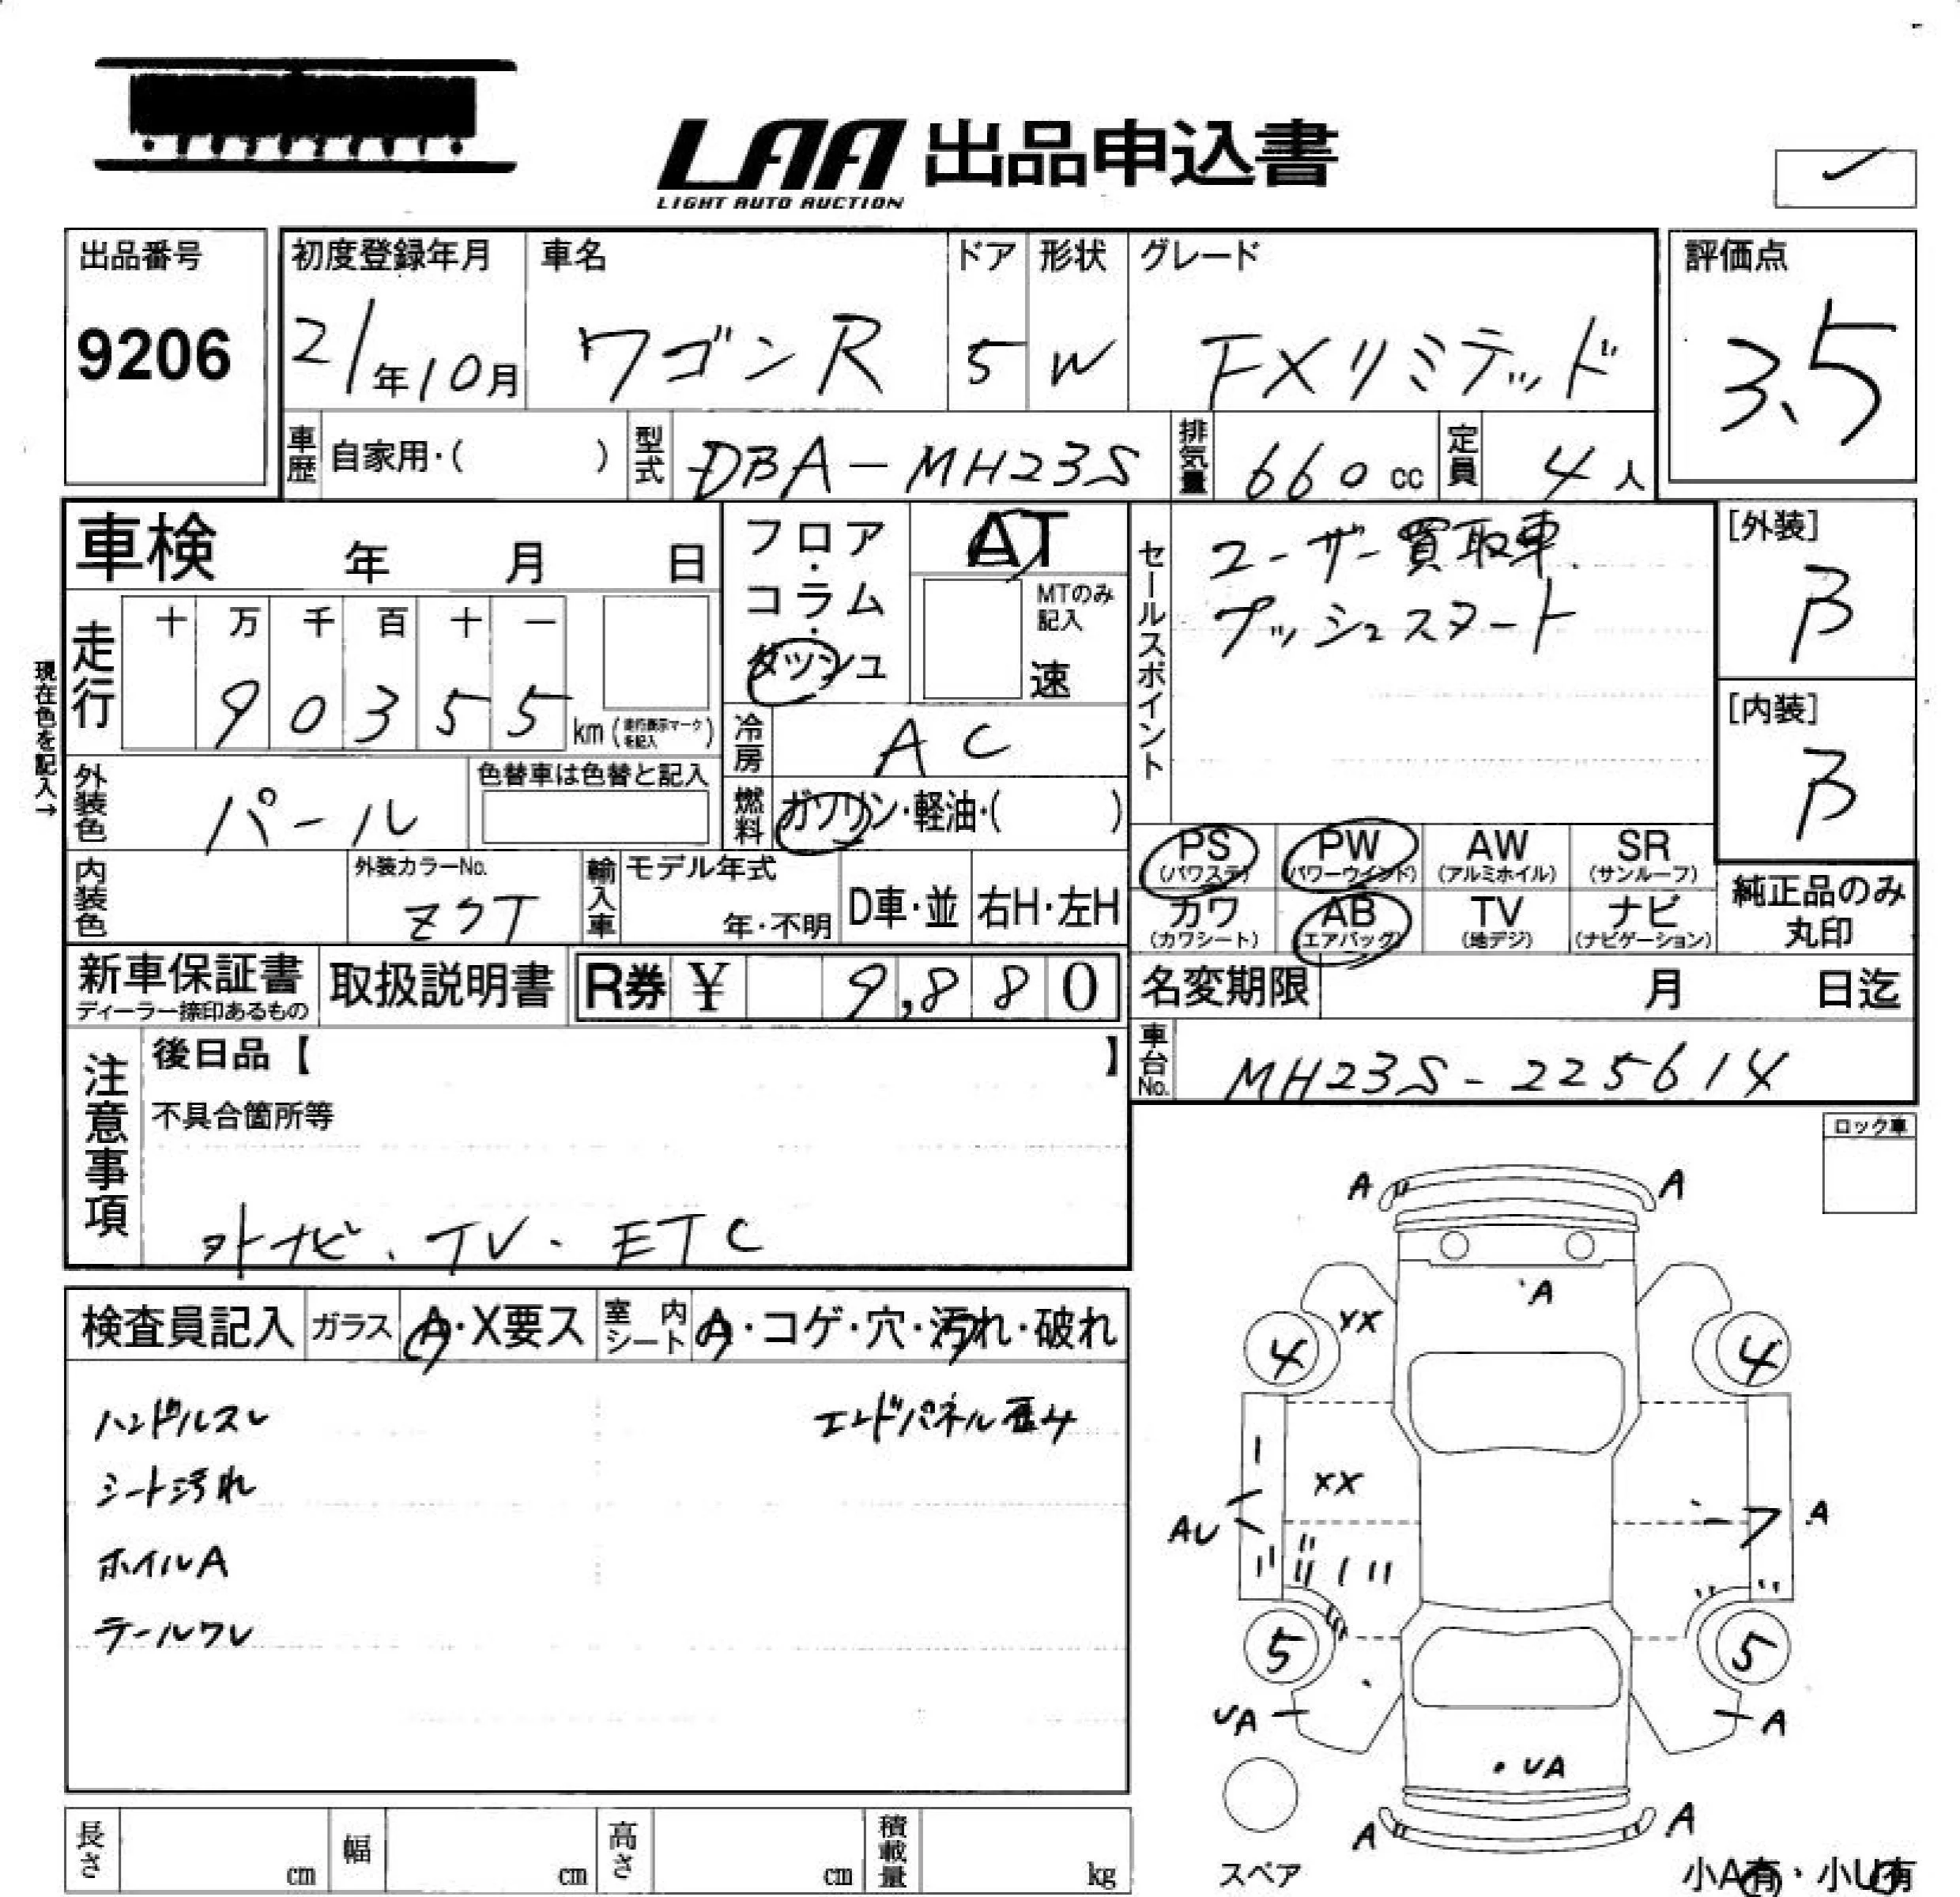 LAA 出品申込書
LIGHT AUTO AUCTION
出品番号
9206
初度登録年月
21年10月
車名
ワゴンR
ドア
5
形状
W
グレード
FXリミテッド
評価点
3.5
車歴 自家用・( )
型式 DBA-MH23S
排気量 660cc
定員 4人
車検 年 月 日
フロア・コラム・ダッシュ
AT
MTのみ記入
速
セールスポイント
ユーザー買取車.
プッシュスタート
[外装]
B
[内装]
B
現在色を記入→
走行
十 万 千 百 十 一
9 0 3 5 5 km (走行表示マークを記入)
冷房 AC
外装色 パール
色替車は色替と記入
燃料 ガソリン・軽油・( )
内装色
外装カラーNo.
Z7T
輸入車
モデル年式
年・不明
D車・並
右H・左H
PS (パワステ)
PW (パワーウインド)
AW (アルミホイル)
SR (サンルーフ)
カワ (カワシート)
AB (エアバッグ)
TV (地デジ)
ナビ (ナビゲーション)
純正品のみ
丸印
新車保証書
ディーラー捺印あるもの
取扱説明書
R券 ¥ 9,880
名変期限 月 日迄
車台No. MH23S-225614
注意事項
後日品【 】
不具合箇所等
外ナビ.TV.ETC
ロック車
検査員記入
ガラス A・X要ス
室内シート A・コゲ・穴・汚れ・破れ
ハンドルスレ
エンドパネル歪み
シート汚れ
ホイルA
テールワレ
A A
A
XX
4 4
XX
AU A
5 5
UA A
UA
A A
スペア
小A有・小U有
長さ cm
幅 cm
高さ cm
積載量 kg